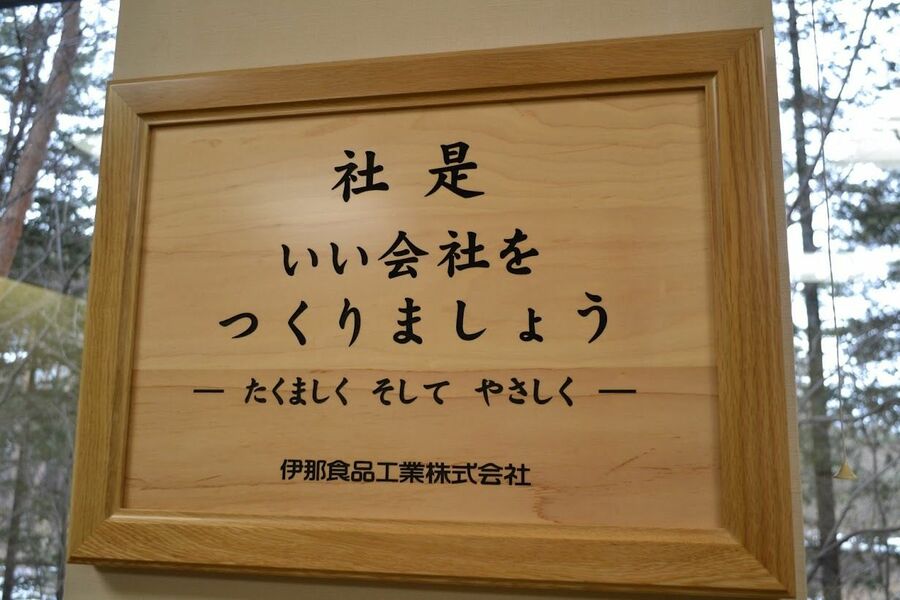 社是
いい会社を
つくりましょう
― たくましく そして やさしく ―
伊那食品工業株式会社